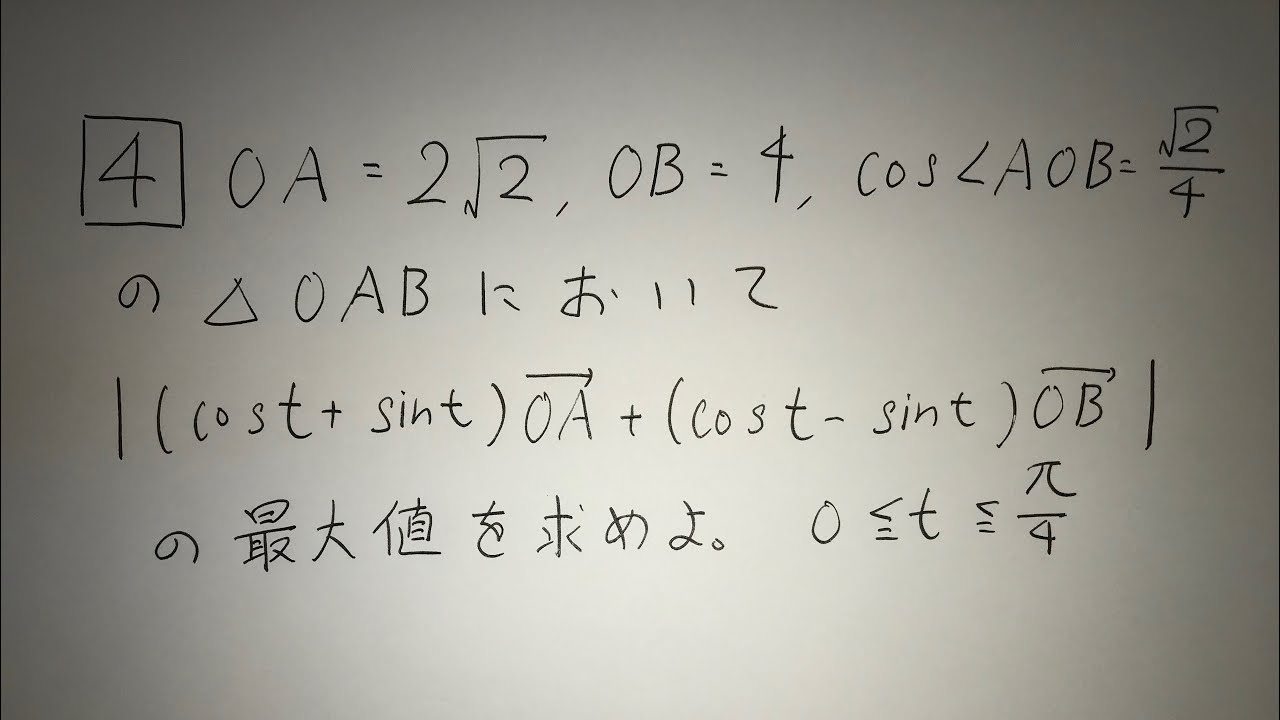 4 OA = 2√2, OB = 4, cos∠AOB = √2/4
の △OAB において
|(cos t + sin t)\overrightarrow{OA} + (cos t - sin t)\overrightarrow{OB}|
の最大値を求めよ。 0 ≦ t ≦ π/4